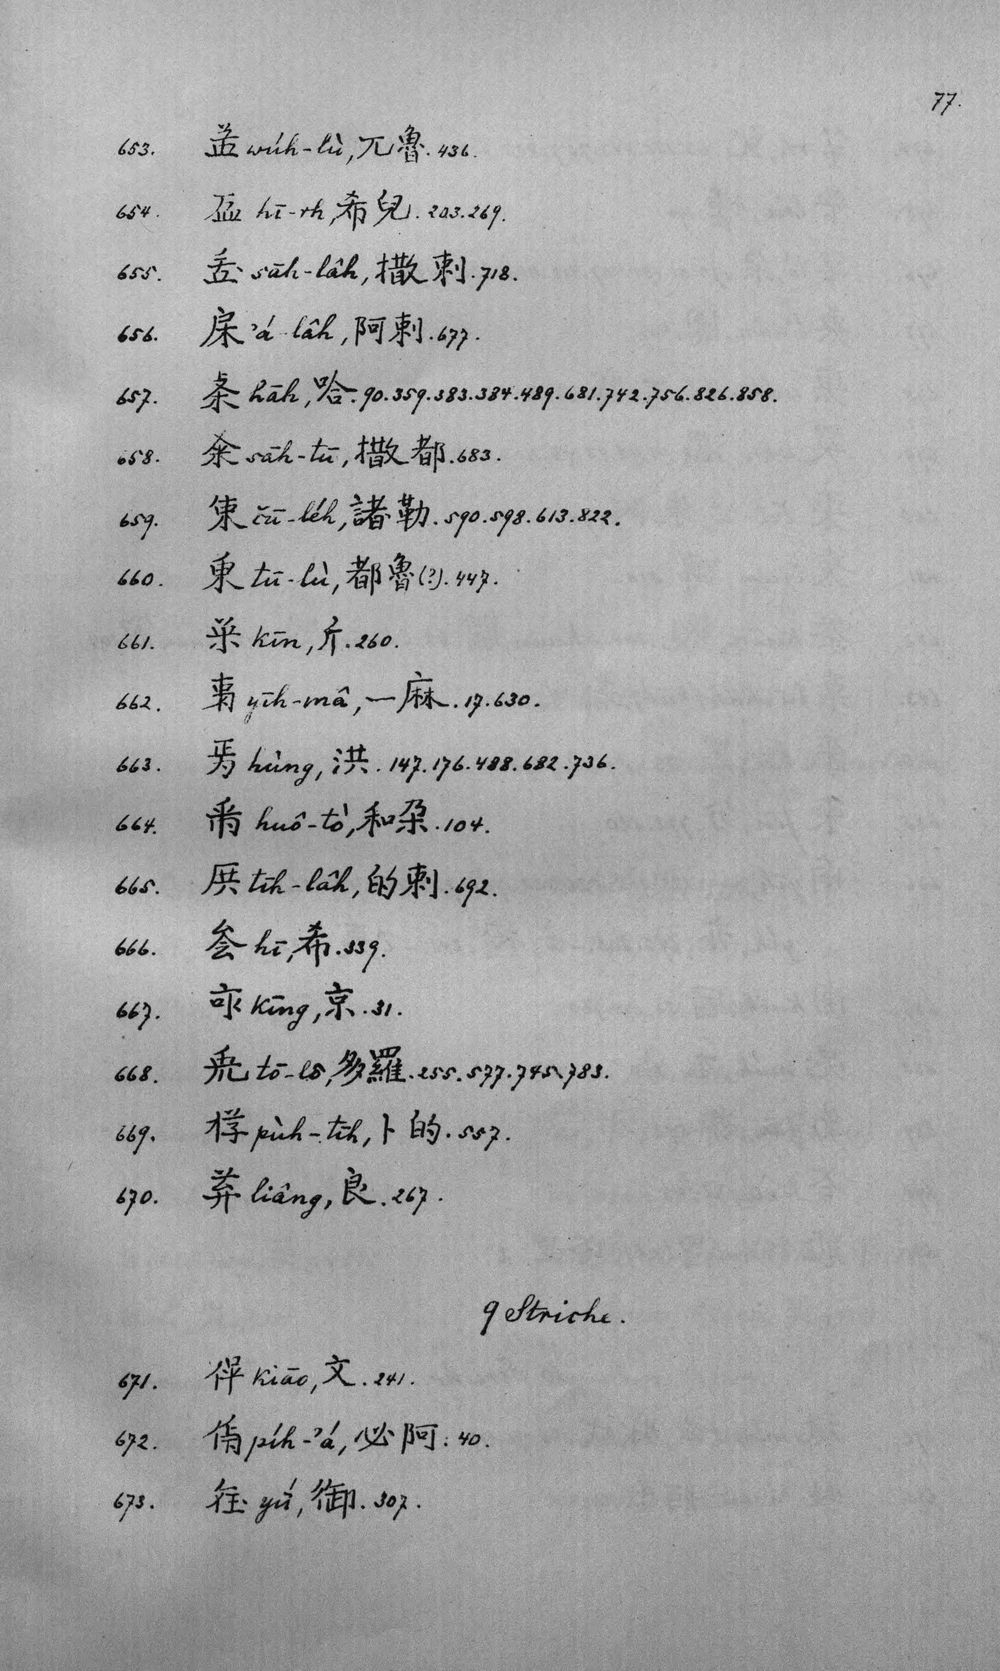 77.
653. wúh-lù, 兀魯. 436.
654. hī-rh, 希兒. 203. 269.
655. sāh-lâh, 撒剌. 718.
656. ’á-lâh, 阿剌. 677.
657. hāh, 哈. 90. 359. 383. 384. 489. 681. 742. 756. 826. 858.
658. sāh-tū, 撒都. 683.
659. čū-léh, 諸勒. 590. 598. 613. 822.
660. tū-lù, 都魯(?). 447.
661. kīn, 斤. 260.
662. yīh-mâ, 一麻. 17. 630.
663. hùng, 洪. 147. 176. 488. 682. 736.
664. huô-tò, 和朶. 104.
665. tīh-lâh, 的剌. 692.
666. hī, 希. 339.
667. kīng, 京. 31.
668. tō-lô, 多羅. 255. 577. 745. 783.
669. pùh-tīh, 卜的. 557.
670. liâng, 良. 267.
9 Striche.
671. kiāo, 文. 241.
672. píh-’á, 必阿. 40.
673. yǘ, 御. 307.